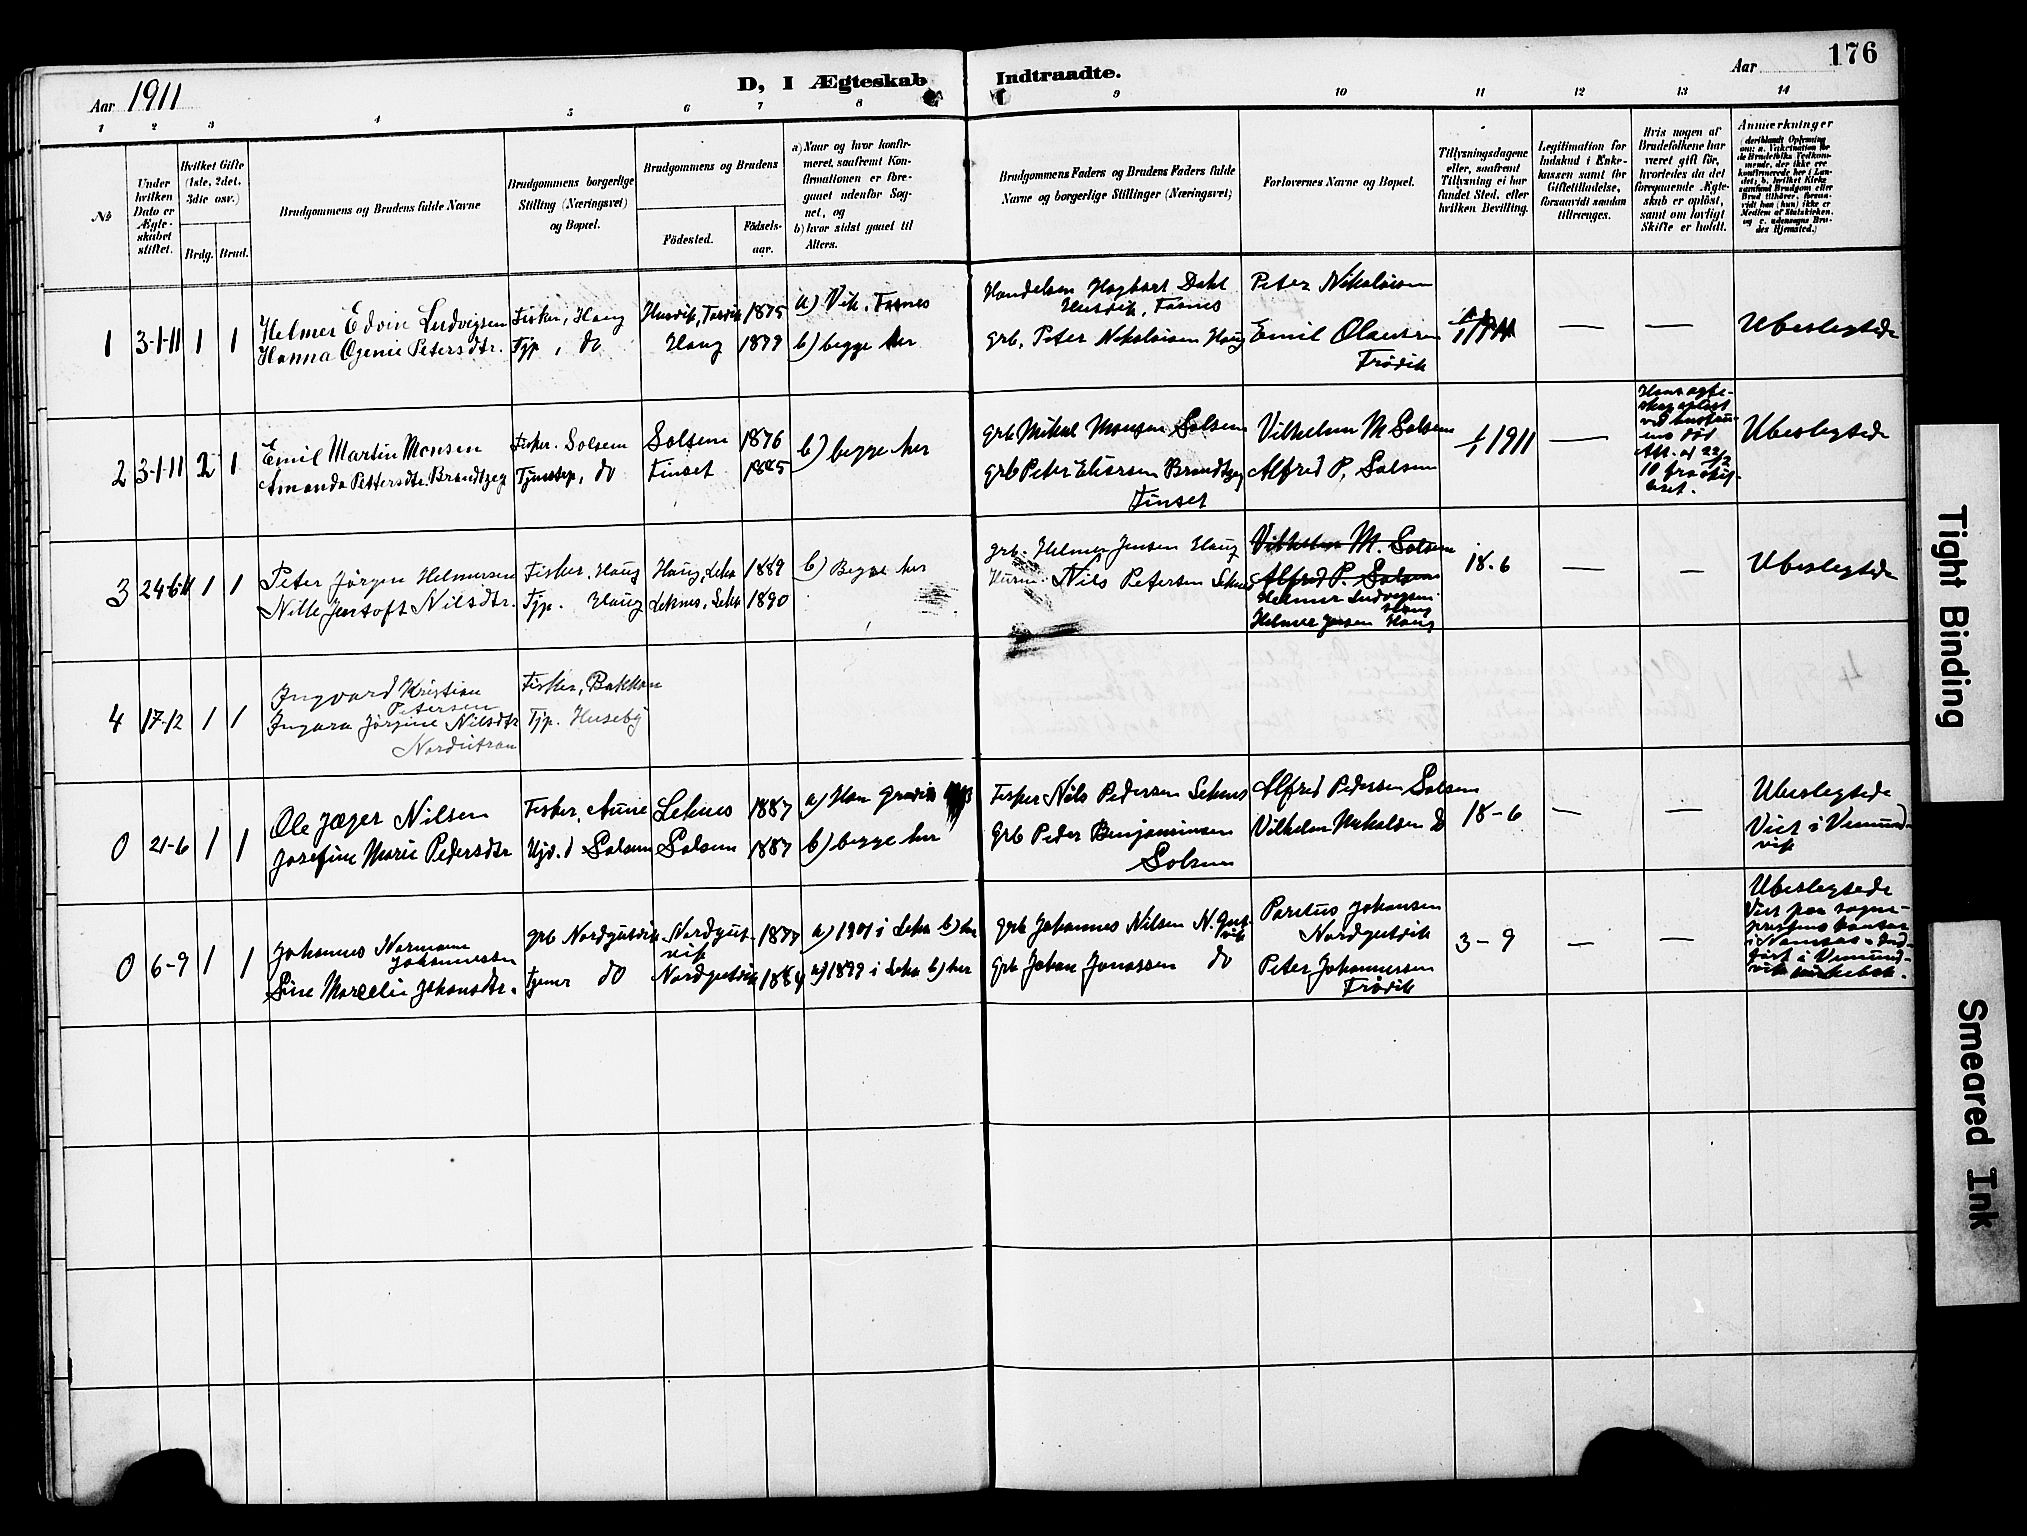 176
Aar 1911
D, I Ægteskab Indtraadte.
Aar
1 2 3 4 5 6 7 8 9 10 11 12 13 14
No
Under hvilken Dato er Ægteskabet stiftet.
Hvilket Gifte (1ste, 2det, 3die osv.)
Brdg. Brud.
Brudgommens og Brudens fulde Navne
Brudgommens borgerlige Stilling (Næringsvei) og Bopæl.
Brudgommens og Brudens
Fødested.
Fødselsaar.
a) Naar og hvor konfirmeret, saafremt Konfirmationen er foregaaet udenfor Sognet, og
b) hvor sidst gaaet til Alters.
Brudgommens Faders og Brudens Faders fulde Navne og borgerlige Stillinger (Næringsvei)
Forlovernes Navne og Bopæl.
Tillysningsdagene eller, saafremt Tillysning ei har fundet Sted, efter hvilken Bevilling.
Legitimation for Indskud i Enkekassen samt for Giftetilladelse, forsaavidt saadan tiltrænges.
Hvis nogen af Brudefolkene har været gift før, hvorledes da det foregaaende Ægteskab er opløst, samt om lovligt Skifte er holdt.
Anmærkninger
1 3-1-11 1 1
Helmer Edvin Ludvigsen
Hanna Ogenie Petersdtr.
Fisker, Haug
Tjp, do
Husvik, Torvik 1875
Haug 1879
a) Vik. Fosnes
b) begge her
Handelsm Hagbart Dahl
Husvik, Fosnes
grb. Peter Nikolaisen Haug
Peter Nikolaisen
Emil Olausen
Frøvik
1/1 1911
— —
Ubeslegtede
2 3-1-11 2 1
Emil Martin Monsen
Amanda Pettersdtr. Brandtzeg
Fisker. Solsem
Tjenestep, do
Solsem 1876
Finset 1885
b) begge her
grb Mikal Monsen Solsem
grb Peter Eliasen Brandtzeg
Finset
Vilhelm M Solsem
Alfred P. Solsem
1/1 1911
—
Hans ægteskap opløst
ved hustruens død
Att. af 22/12
10 fra skifteret.
Ubeslegtede
3 24-6-11 1 1
Peter Jørgen Helmersen
Nille Jentoft Nilsdtr.
Fisker. Haug
Tjp. Haug
Haug, Leka 1889
Leknes, Leka 1890
b) Begge her
grb. Helmer Jensen Haug
Husm. Nils Petersen Leknes
Vilhelm M. Solsem
Alfred P. Solsem
Helmer Ludvigsen
Haug
Helmer Jensen Haug
18-6
— —
Ubeslegtede
4 17-12 1 1
Ingvard Kristian
Petersen
Ingara Jørgine Nilsdtr
Nordutran
Fisker, Bakken
Tjp. Huseby
4
0 21-6 1 1
Ole Jæger Nilsen
Josefine Marie Pedersdtr
Fisker, Aune
Ugd. d Solsem
Leknes 1887
Solsem 1887
a) Han
b) begge her
Fisker Nils Pedersen Leknes
Grb Peder Benjaminsen
Solsem
Alfred Pedersen Solsem
Vilhelm Mikalsen D
18-6
— —
Ubeslegtede
Viet i Vemundvik
0 6-9 1 1
Johannes Normann
Johannessen
Sine Marcelie Johansdtr.
grb Nordgutvik
Tjener do
Nordgutvik 1877
Nordgutvik 1884
a) 1901 i Leka b) her
a) 1899 i Leka b) her
grb Johannes Nilsen N. Gutvik
Grb Johan Jonassen do
Paretus Johansen
Nordgutvik
Peter Johannessen
Frøvik
3-9
— —
Ubeslegtede
Viet paa sogneprestens kontor
i Namsos. Indført i Vemundvik kirkebok.
Tight Binding
Smeared Ink